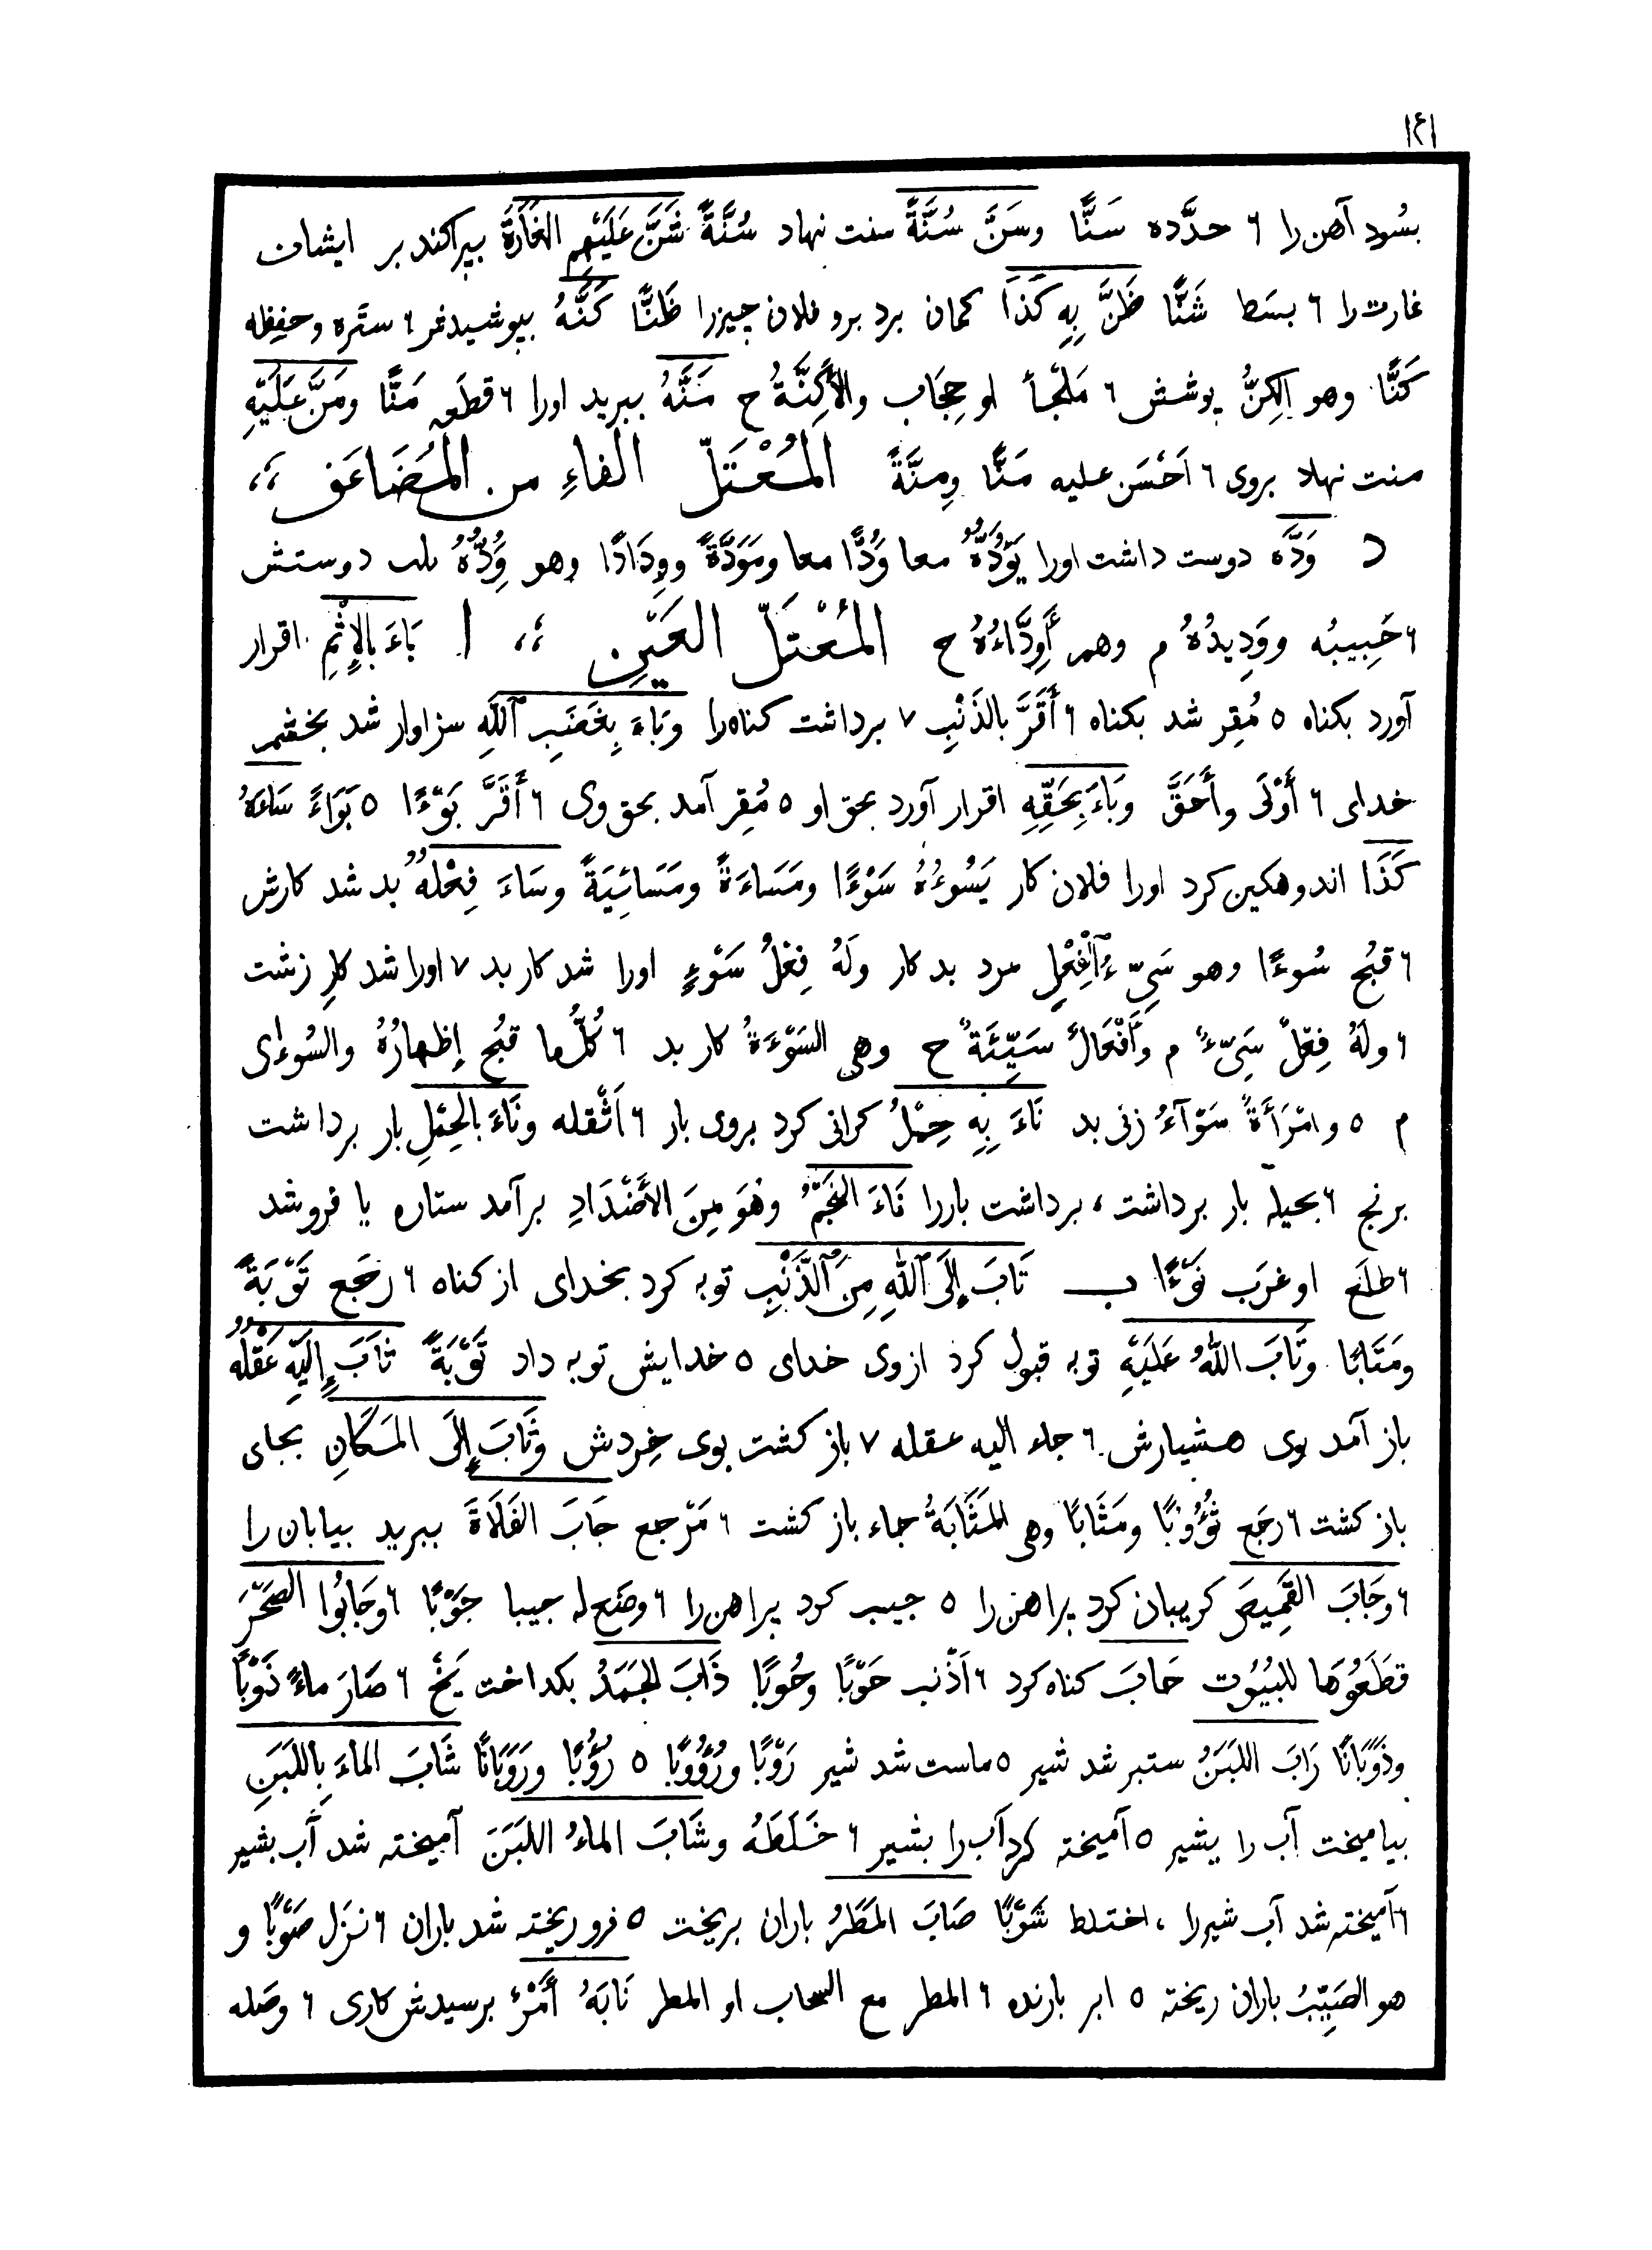 ١٤١
بسُود آهن را ٦ حدَّده سَنًّا وسَنَّ سُنَّةً سنت نهاد سُنَّةً شَنَّ عَلَيْهِم الغَارَةَ بپراکند بر ایشان
غارت را ٦ بسَط شَنًّا ظَنَّ بِهِ كَذَا کمان برد برو فلان چیز را ظَنًّا كَنَّهُ بپوشیدش ٦ ستَره وحفِظه
كَنًّا وهو الكِنُّ پوشش ٦ مَلْجأ او حِجَاب والأَكِنَّةُ ح مَنَّهُ ببرید اورا ٦ قطَعه مَنًّا ومَنَّ عَلَيْهِ
منت نهاد بروی ٦ اَحْسَن عليه مَنًّا ومِنَّةً المُعْتَلّ الفاءِ من المُضَاعَف ،،
د وَدَّه دوست داشت اورا يَوَدُّهُ معا وَُدًّا معا ومَوَدَّةً ووِدَادًا وهو وُِدُّهُ دوستش
٦ حَبِيبُه ووَدِيدُهُ م وهم أَوِدَّاءُهُ ح المُعْتَلّ العَيْنِ ،، ا بَاءَ بالإِثْمِ اقرار
آورد بکناه ٥ مُقِر شد بکناه ٦ أَقَرَّ بالذَنْبِ ٧ برداشت کناه را وبَاءَ بِغَضَبِ ٱللهِ سزاوار شد بخشم
خدای ٦ أَوْلَى وأَحَقَّ وبَاءَ بِحَقِّهِ اقرار آورد بحق او ٥ مُقِر آمد بحق وی ٦ أَقَرَّ بَوْءًا ٥ بَوَاءً سَاءَهُ
كَذَا اندوهکین کرد اورا فلان کار يَسُوْءُهُ سَوْءًا ومَسَاءَةً ومَسَائِيَةً وسَاءَ فِعْلُهُ بد شد کارش
٦ قبُح سُوءًا وهو سَيِّءُ ٱلْفِعْلِ مرد بد کار ولَهُ فِعْلُ سَوْءٍ اورا شد کار بد ٧ اورا شد کارِ زشت
٦ ولَهُ فِعْلٌ سَيِّءٌ م وأَفْعَالٌ سَيِّئَةٌ ح وهى السَوْءَةُ کار بد ٦ كُلُّ ما قبُح إِظهارُهُ والسُوءاى
م ٥ وامْرَأَةٌ سَوْآءُ زنی بد نَاءَ بِهِ حِمْلٌ کرانی کرد بروی بار ٦ اَثْقله ونَاءَ بالحِمْلِ بار برداشت
برنج ٦ بحیله بار برداشت ، برداشت باررا نَاءَ النَجْمُ وهُوَ مِنَ الأَضْدَادِ برآمد ستاره یا فرو شد
٦ طلَع او غرَب نَوْءًا ب تَابَ إِلَى ٱللهِ مِنَ ٱلذَّنْبِ توبه کرد بخدای از کناه ٦ رجَع تَوْبَةً
ومَتَابًا وتَابَ اللهُ عَلَيْهِ توبه قبول کرد ازوی خدای ٥ خدایش توبه داد تَوْبَةً ثَابَ إِلَيْهِ عَقْلُهُ
باز آمد بوی هشیارش ٦ جاء اليه عقله ٧ باز کشت بوی خِردش وثَابَ إِلَى المَكَانِ بجای
باز کشت ٦ رجَع ثُؤُوبًا ومَثَابًا وهى المَثَابَةُ جاء باز کشت ٦ مَرْجع جَابَ الفَلَاةَ ببرید بیابان را
٦ وجَابَ القَمِيصَ کریبان کرد پراهن را ٥ جیب کرد پراهن را ٦ وضَع له جيبا جَوْبًا ٦ وجَابُوا الصَخْرَ
قطَعُوهَا للبُيُوت حَابَ کناه کرد ٦ اَذْنب حَوْبًا وحُوبًا ذَابَ الجَمَدُ بکداخت یَخ ٦ صَارَ ماءً ذَوْبًا
وذَوَبَانًا رَابَ اللبَنُ ستبر شد شیر ٥ ماست شد شیر رَوْبًا ورُؤُوبًا ٥ رُؤْبًا ورَوَبَانًا شَابَ الماءَ بِاللبَنِ
بیامیخت آب را بشیر ٥ آمیخته کرد آب را بشیر ٦ خَلَطَهُ وشَابَ الماءُ اللبَنَ آمیخته شد آب بشیر
٦ آمیخته شد آب شیر را ، اختلط شَوْبًا صَابَ المَطَرُ باران بریخت ٥ فرو ریخته شد باران ٦ نزَل صَوْبًا و
هو الصَيِّبُ باران ریخته ٥ ابر بارنده ٦ المطر مع السحاب او المطر نَابَهُ أَمْرٌ برسیدش کاری ٦ وصَله